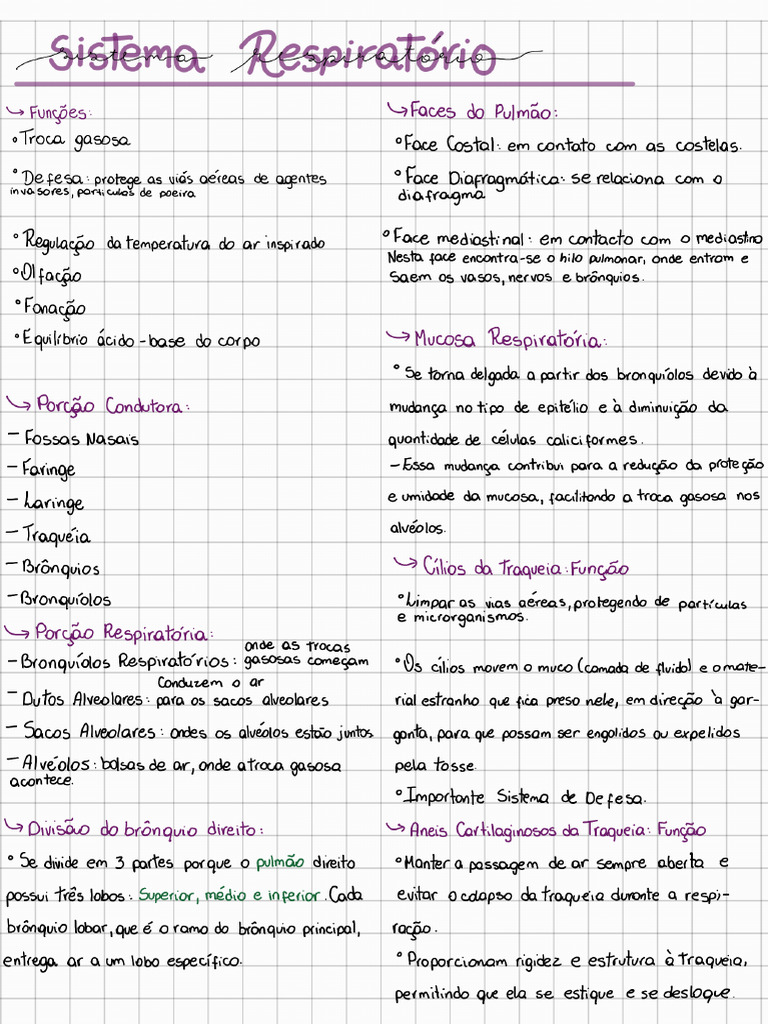 Sistema Respiratório
sistema respiratório
↳ Funções:
°Troca gasosa
°Defesa: protege as vias aéreas de agentes
invasores, particulas de poeira
°Regulação da temperatura do ar inspirado
°Olfação
°Fonação
°Equilíbrio ácido-base do corpo
↳ Porção Condutora:
- Fossas Nasais
- Faringe
- Laringe
- Traquéia
- Brônquios
- Bronquíolos
↳ Porção Respiratória:
- Bronquíolos Respiratórios: onde as trocas
gasosas começam
- Dutos Alveolares: Conduzem o ar
para os sacos alveolares
- Sacos Alveolares: ondes os alvéolos estão juntos
- Alvéolos: bolsas de ar, onde a troca gasosa
acontece.
↳ Divisão do brônquio direito:
° Se divide em 3 partes porque o pulmão direito
possui três lobos: Superior, médio e inferior. Cada
brônquio lobar, que é o ramo do brônquio principal,
entrega ar a um lobo específico.
↳ Faces do Pulmão:
°Face Costal: em contato com as costelas.
°Face Diafragmática: se relaciona com o
diafragma
°Face mediastinal: em contacto com o mediastino
Nesta face encontra-se o hilo pulmonar, onde entram e
saem os vasos, nervos e brônquios.
↳ Mucosa Respiratória:
° Se torna delgada a partir dos bronquíolos devido à
mudança no tipo de epitélio e à diminuição da
quantidade de células caliciformes.
- Essa mudança contribui para a redução da proteção
e umidade da mucosa, facilitando a troca gasosa nos
alvéolos.
↳ Cílios da Traqueia: Função
°Limpar as vias aéreas, protegendo de partículas
e microrganismos.
°Os cílios movem o muco (camada de fluido) e o mate-
rial estranho que fica preso nele, em direção à gar-
ganta, para que possam ser engolidos ou expelidos
pela tosse.
°Importante Sistema de Defesa.
↳ Aneis Cartilaginosos da Traqueia: Função
°Manter a passagem de ar sempre aberta e
evitar o colapso da traqueia durante a respi-
ração.
°Proporcionam rigidez e estrutura à traqueia,
permitindo que ela se estique e se desloque.